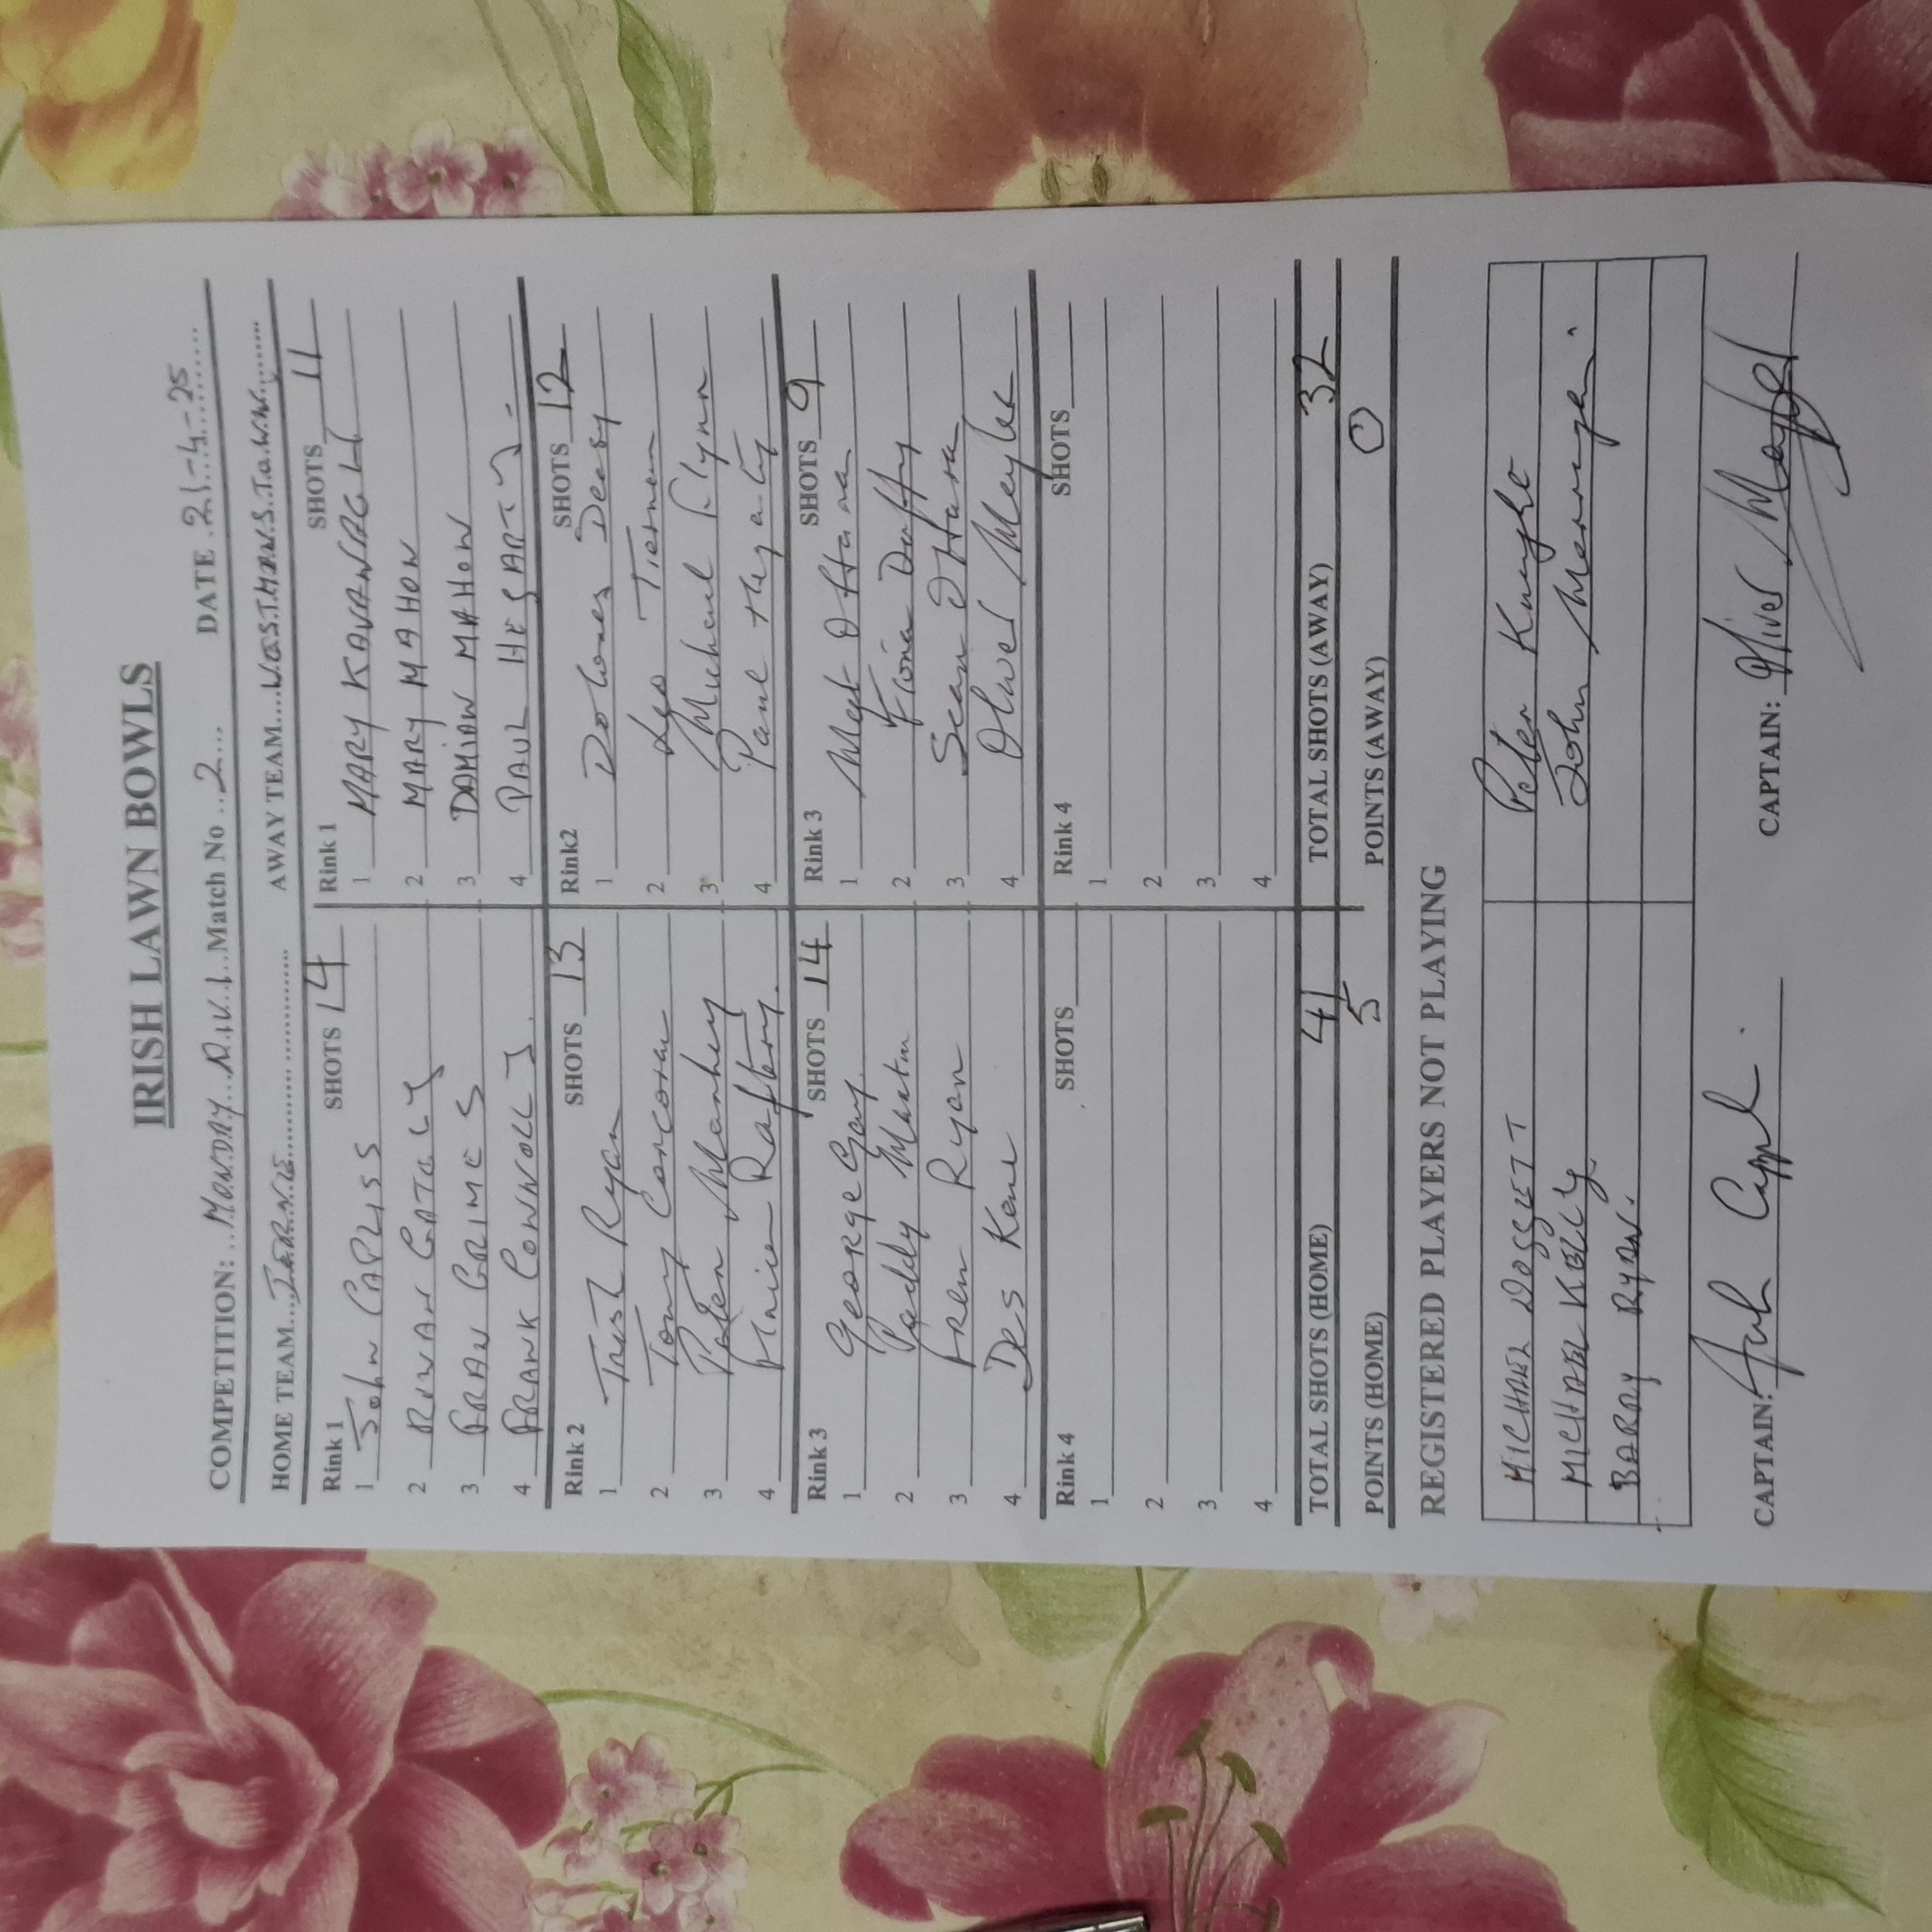 IRISH LAWN BOWLS
COMPETITION: MONDAY DIV. 1 Match No 2 DATE 21-4-25
HOME TEAM IERNE AWAY TEAM WESTMANSTOWN
Rink 1 SHOTS 14 Rink 1 SHOTS 11
1 JOHN CAPLISS 1 MARY KAVANAGH
2 RONAN GATELY 2 MARY MAHON
3 FRAN GRIMES 3 DAMIAN MAHON
4 FRANK CONNOLLY 4 PAUL HEGARTY
Rink 2 SHOTS 13 Rink2 SHOTS 12
1 Trish Ryan 1 Dolores Deasy
2 Tony Corcoran 2 Leo Tiernan
3 Peter Manhey 3 Micheal Flynn
4 Rafter 4 Paul Hegarty
Rink 3 SHOTS 14 Rink 3 SHOTS 9
1 George Gay 1 O Hara
2 Paddy Martin 2 Fiona Duffy
3 Ryan 3 Sean O Hara
4 Des Kane 4 Oliver Meyler
Rink 4 SHOTS Rink 4 SHOTS
1 1
2 2
3 3
4 4
TOTAL SHOTS (HOME) 41 TOTAL SHOTS (AWAY) 32
POINTS (HOME) 5 POINTS (AWAY) 0
REGISTERED PLAYERS NOT PLAYING
MICHAEL DOGGETT Peter Knight
MICHAEL KELLY John
BARRY RYAN.
CAPTAIN: CAPTAIN: Oliver Meyler